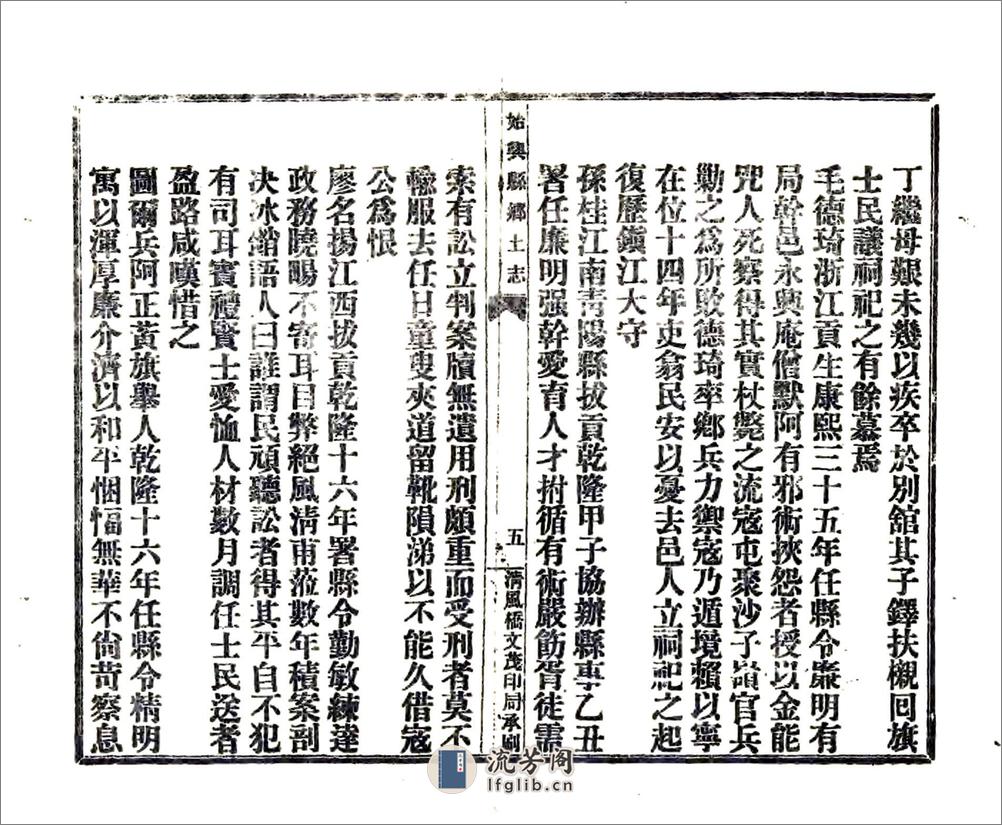 丁繼母艱未幾以疾卒於別舘其子鐸扶櫬回旗
士民議祠祀之有餘慕焉
毛德琦浙江貢生康熙三十五年任縣令嚴明有
局幹邑永興庵僧默阿有邪術挾怨者授以金能
咒人死察得其實杖斃之流寇屯聚沙子嶺官兵
勦之爲所敗德琦率鄉兵力禦寇乃遁境賴以寧
在位十四年吏翕民安以憂去邑人立祠祀之起
復歷鎮江大守
孫桂江南靑陽縣拔貢乾隆甲子協辦縣事乙丑
署任廉明强幹愛育人才拊循有術嚴筯胥徒需
始興縣鄉土志
五
淸風橋文茂印局承刷
索有訟立判案牘無遺用刑頗重而受刑者莫不
輸服去任日童叟夾道留靴隕涕以不能久借寇
公爲恨
廖名揚江西拔貢乾隆十六年署縣令勤敏練達
政務曉暘不寄耳目弊絕風淸甫蒞數年積案剖
决冰銷語人曰誰謂民頑聽訟者得其平自不犯
有司耳實禮賢士愛恤人材數月調任士民送者
盈路咸嘆惜之
圖爾兵阿正黃旗舉人乾隆十六年任縣令精明
寓以渾厚廉介濟以和平悃愊無華不尙苛察息
流芳阁
lfglib.cn